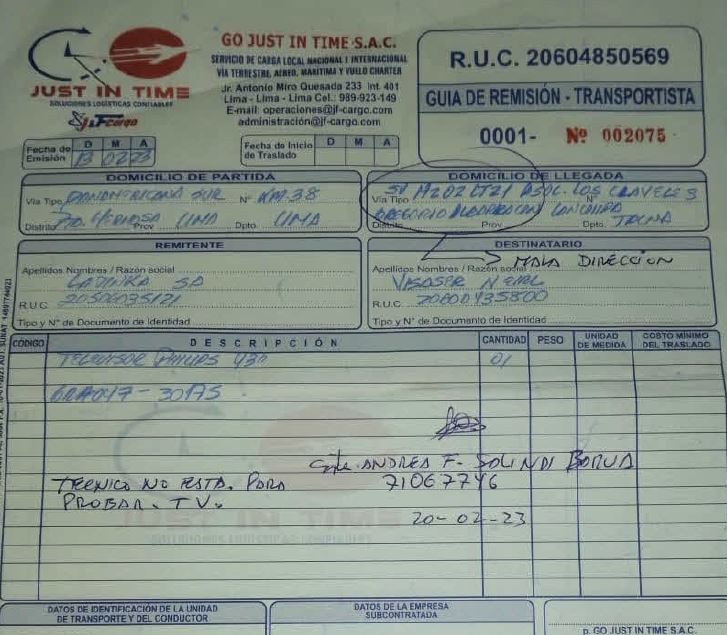 JUST IN TIME
SOLUCIONES LOGISTICAS CONFIABLES
J&Fcargo
GO JUST IN TIME S.A.C.
SERVICIO DE CARGA LOCAL NACIONAL E INTERNACIONAL
VÍA TERRESTRE, AÉREO, MARÍTIMA Y VUELO CHARTER
Jr. Antonio Miro Quesada 233 Int. 401
Lima - Lima - Lima Cel.: 989-923-149
E-mail: operaciones@jf-cargo.com
administración@jf-cargo.com
R.U.C. 20604850569
GUIA DE REMISIÓN - TRANSPORTISTA
0001- Nº 002075
Fecha de Emisión D M A
13 02 23
Fecha de Inicio de Traslado D M A
DOMICILIO DE PARTIDA
Vía Tipo PANAMERICANA SUR Nº KM 38
Distrito Prov LIMA Dpto LIMA
DOMICILIO DE LLEGADA
Vía Tipo LT21 ASOC. LOS CLAVELES Nº
GREGORIO ALBARRACIN LANCHIPA
Distrito Prov Dpto. TACNA
REMITENTE
Apellidos Nombres / Razón social
SA
R.U.C.
Tipo y Nº de Documento de Identidad
DESTINATARIO
MALA DIRECCION
Apellidos Nombres / Razón social
R.U.C.
Tipo y Nº de Documento de Identidad
CÓDIGO DESCRIPCIÓN CANTIDAD PESO UNIDAD DE MEDIDA COSTO MÍNIMO DEL TRASLADO
TELEVISOR PHILIPS 43" 01
30175
ANDREA F. SOLINDI BORUA
TECNICO NO ESTA. PARA 71067746
PROBAR. T.V.
20-02-23
DATOS DE IDENTIFICACIÓN DE LA UNIDAD DE TRANSPORTE Y DEL CONDUCTOR
DATOS DE LA EMPRESA SUBCONTRATADA
p. GO JUST IN TIME S.A.C.